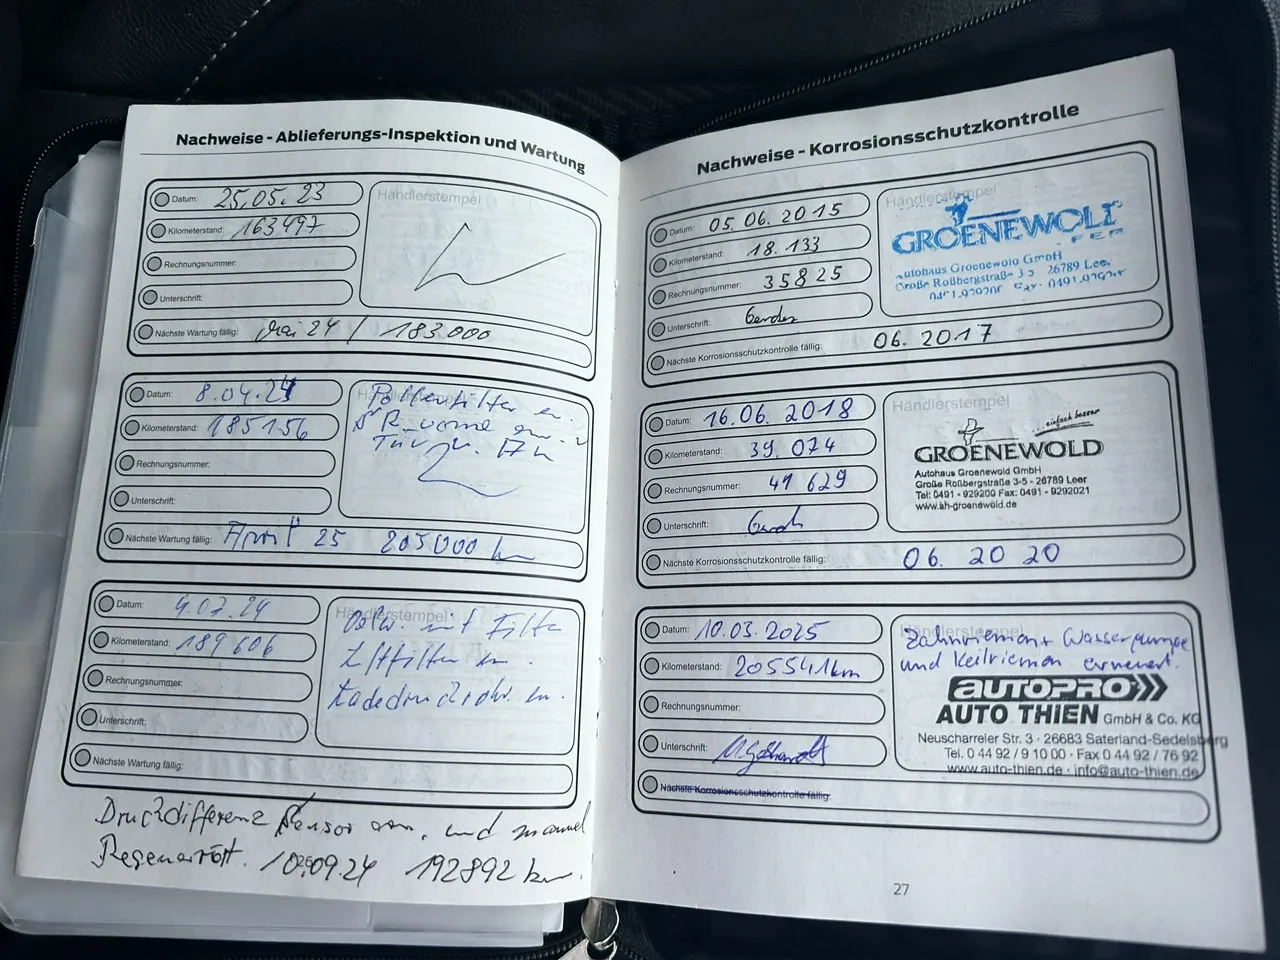 Nachweise - Ablieferungs-Inspektion und Wartung
Datum: 25.05.23
Händlerstempel
Kilometerstand: 163497
Rechnungsnummer:
Unterschrift:
Nächste Wartung fällig: Mai 24 / 183.000
Datum: 8.04.24
Händlerstempel
Pollenfilter en.
Kilometerstand: 185156
R_vorne
TÜV
Rechnungsnummer:
Unterschrift:
Nächste Wartung fällig: April 25 205000 km
Datum: 4.07.24
Händlerstempel
Oelw. mit Filter
Kilometerstand: 189606
Luftfilter en.
Rechnungsnummer:
Ladedruckrohr. en.
Unterschrift:
Nächste Wartung fällig:
Druckdifferenz Sensor ern. und manuel
Regeneriert. 10.09.24 192892 km.
Nachweise - Korrosionsschutzkontrolle
Datum: 05.06.2015
Händlerstempel
GROENEWOLD
Kilometerstand: 18.133
Autohaus Groenewold GmbH
Rechnungsnummer: 35825
Große Roßbergstraße 3-5 26789 Leer
Unterschrift:
Nächste Korrosionsschutzkontrolle fällig: 06.2017
Datum: 16.06.2018
Händlerstempel
...einfach besser
GROENEWOLD
Kilometerstand: 39.074
Autohaus Groenewold GmbH
Große Roßbergstraße 3-5 - 26789 Leer
Tel: 0491 - 929200 Fax: 0491 - 9292021
www.ah-groenewold.de
Rechnungsnummer: 41629
Unterschrift:
Nächste Korrosionsschutzkontrolle fällig: 06.2020
Datum: 10.03.2025
Händlerstempel
Zahnriemen + Wasserpumpe
und Keilriemen erneuert.
Kilometerstand: 205541km
AUTOPRO
AUTO THIEN GmbH & Co. KG
Rechnungsnummer:
Neuscharreler Str. 3 · 26683 Saterland-Sedelsberg
Tel. 0 44 92 / 9 10 00 · Fax 0 44 92 / 76 92
www.auto-thien.de · info@auto-thien.de
Unterschrift:
Nächste Korrosionsschutzkontrolle fällig:
27